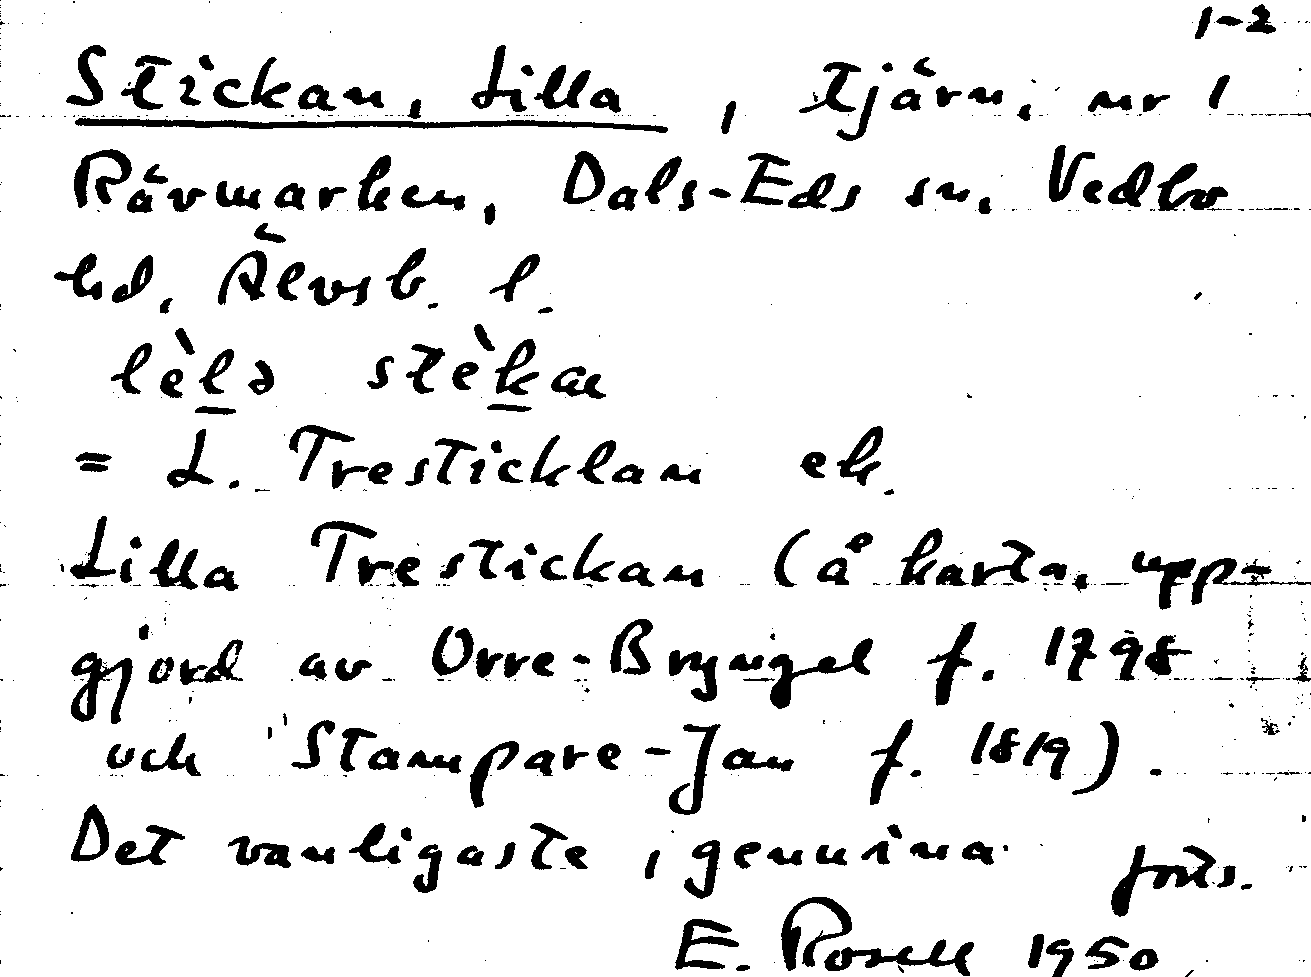 1-2
Stickan, Lilla, tjärn, nr 1
Rävmarken, Dals-Eds sn, Vedbo
hd, Älvsb. l.
lèlə stèkaɴ
= L. Tresticklan ek.
Lilla Trestickan (å karta, upp-
gjord av Orre-Bryngel f. 1798
och Stampare-Jan f. 1819).
Det vanligaste, genuina forts.
E. Rosell 1950